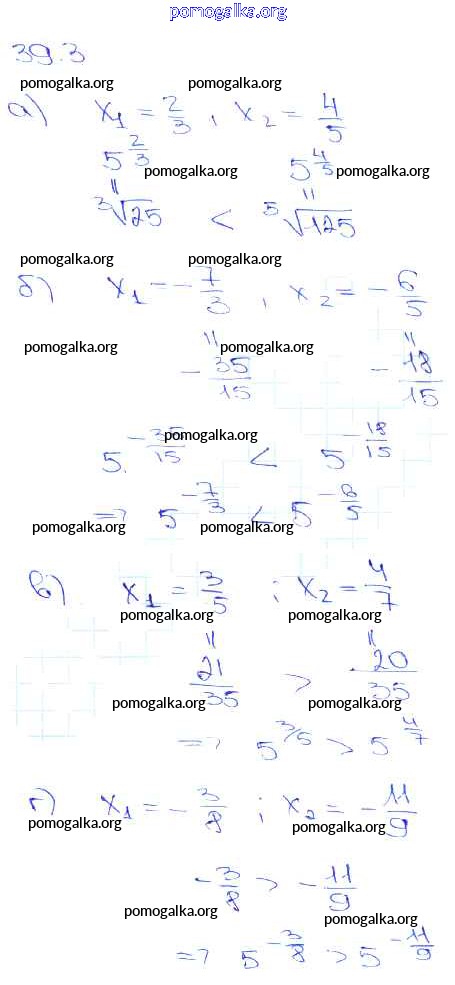 pomogalka.org
39.3
pomogalka.org pomogalka.org
а) x₁ = 2/3 , x₂ = 4/5
5^(2/3) 5^(4/5)
pomogalka.org pomogalka.org
|| ||
³√25 < ⁵√125
pomogalka.org pomogalka.org
б) x₁ = -7/3 , x₂ = -6/5
pomogalka.org || pomogalka.org ||
-35/15 -18/15
pomogalka.org
5^(-35/15) < 5^(-18/15)
=> 5^(-7/3) < 5^(-6/5)
pomogalka.org pomogalka.org
в) x₁ = 3/5 ; x₂ = 4/7
pomogalka.org pomogalka.org
|| ||
21/35 > 20/35
pomogalka.org pomogalka.org
=> 5^(3/5) > 5^(4/7)
г) x₁ = -3/8 ; x₂ = -11/9
pomogalka.org pomogalka.org
-3/8 > -11/9
pomogalka.org pomogalka.org
=> 5^(-3/8) > 5^(-11/9)